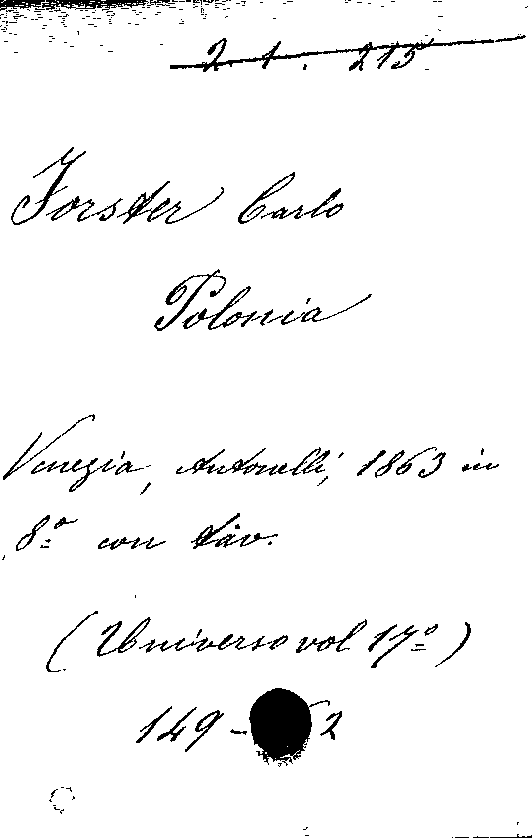 2. 1. 215
Forster Carlo
Polonia
Venezia, Antonelli, 1863 in
8º con tav.
(Universo vol 17º)
149 - 2